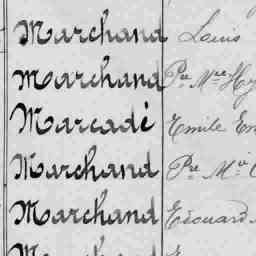 Marchand Louis
Marchand Pre Mie Hy
Marcadé Emile Em
Marchand Pre Mie
Marchand Edouard